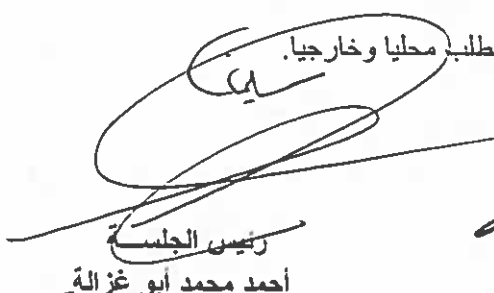 طلب محليا وخارجيا.
رئيس الجلسة
أحمد محمد أبو غزالة